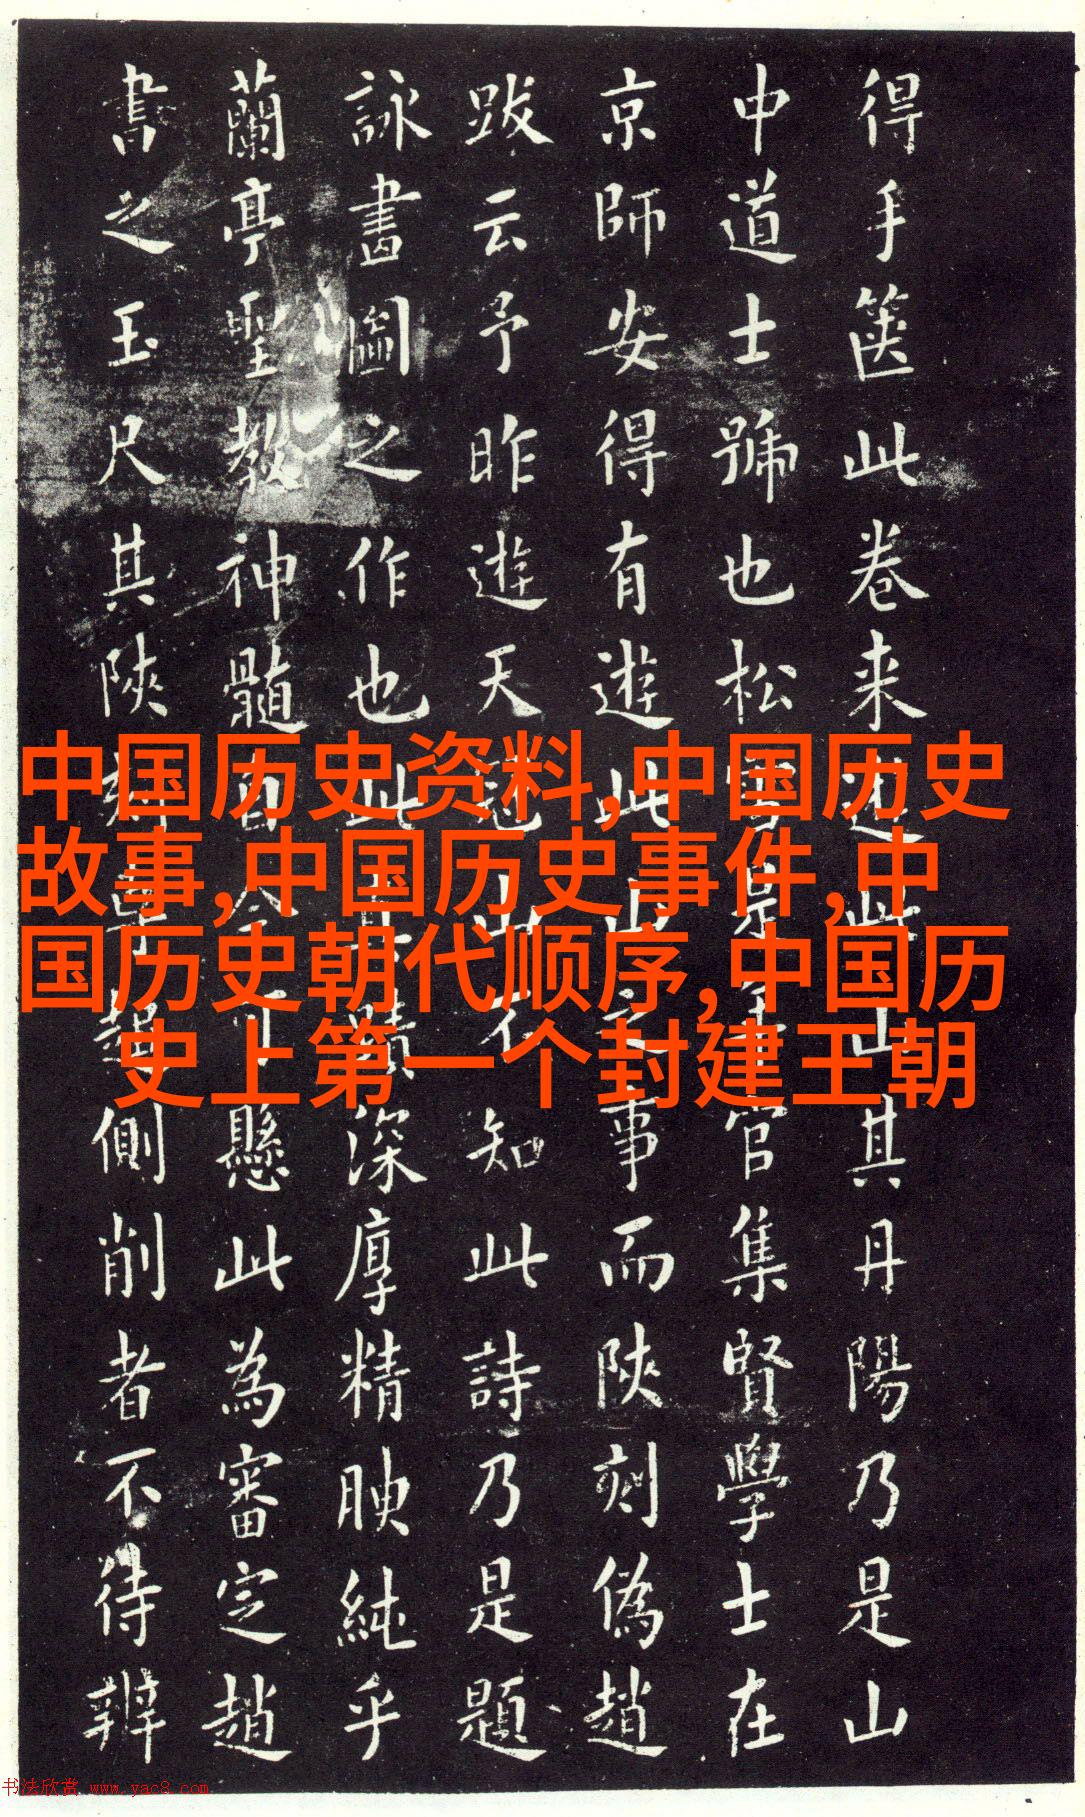 得手箧此卷来此山其丹陽乃是山
中道士號也松雪是官集賢學士在
京師安得有遊此山之事而陝刻偽趙
跋云予昨遊天冠山不知此詩乃是題
詠畫圖之作也此真蹟深厚精腴純乎
蘭亭聖教神髓百金可懸此為審定趙
書之玉尺其陝刻專趨側削者不待辨
中国历史资料,中国历史
故事,中国历史事件,中
国历史朝代顺序,中国历
史上第一个封建王朝
书法欣赏 www.yac8.com